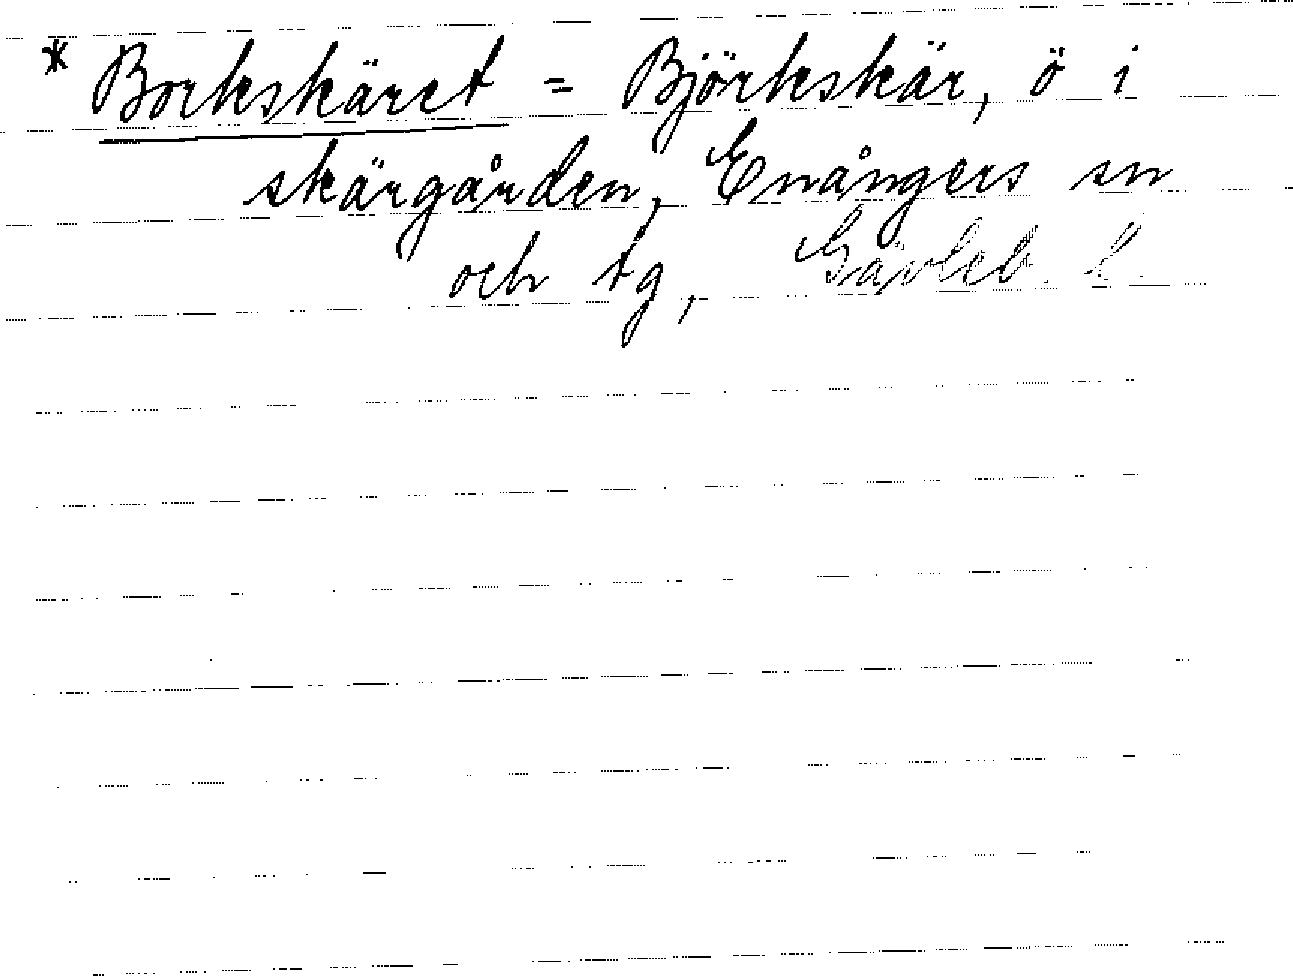 * Borkskäret = Björkskär, ö i
skärgården, Enångers sn
och tg, Gävleb. l.